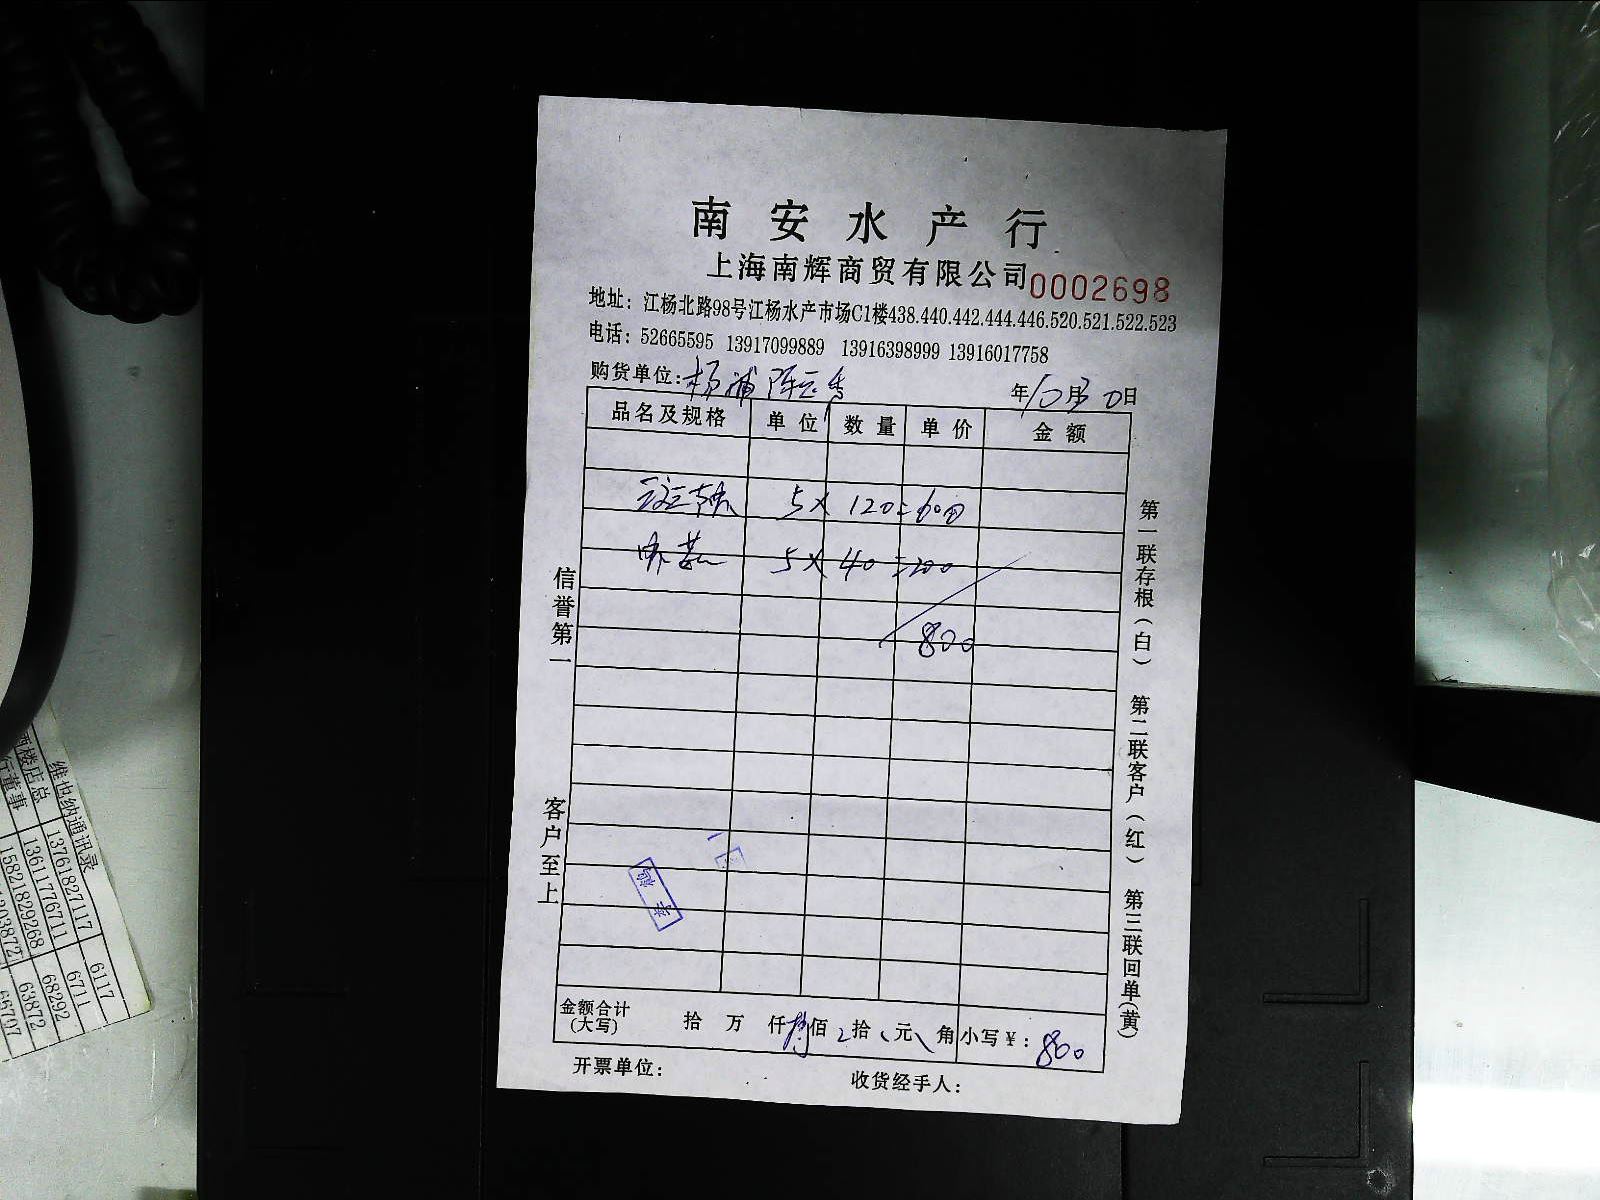 南安水产行
上海南辉商贸有限公司 0002698
地址：江杨北路98号江杨水产市场C1楼438.440.442.444.446.520.521.522.523
电话：52665595 13917099889 13916398999 13916017758
购货单位：杨浦 年10月30日
品名及规格 单位 数量 单价 金额
5 x 120 = 600
5 x 40 = 200
800
信誉第一 客户至上
第一联存根（白） 第二联客户（红） 第三联回单（黄）
金额合计（大写） 拾 万 仟 捌佰 拾 元 角 小写￥：800
开票单位： 收货经手人：
维也纳通讯录
酒楼店总 13761827117 6117
行董事 13611776711 6711
15821829268 68292
03872 63872
66707